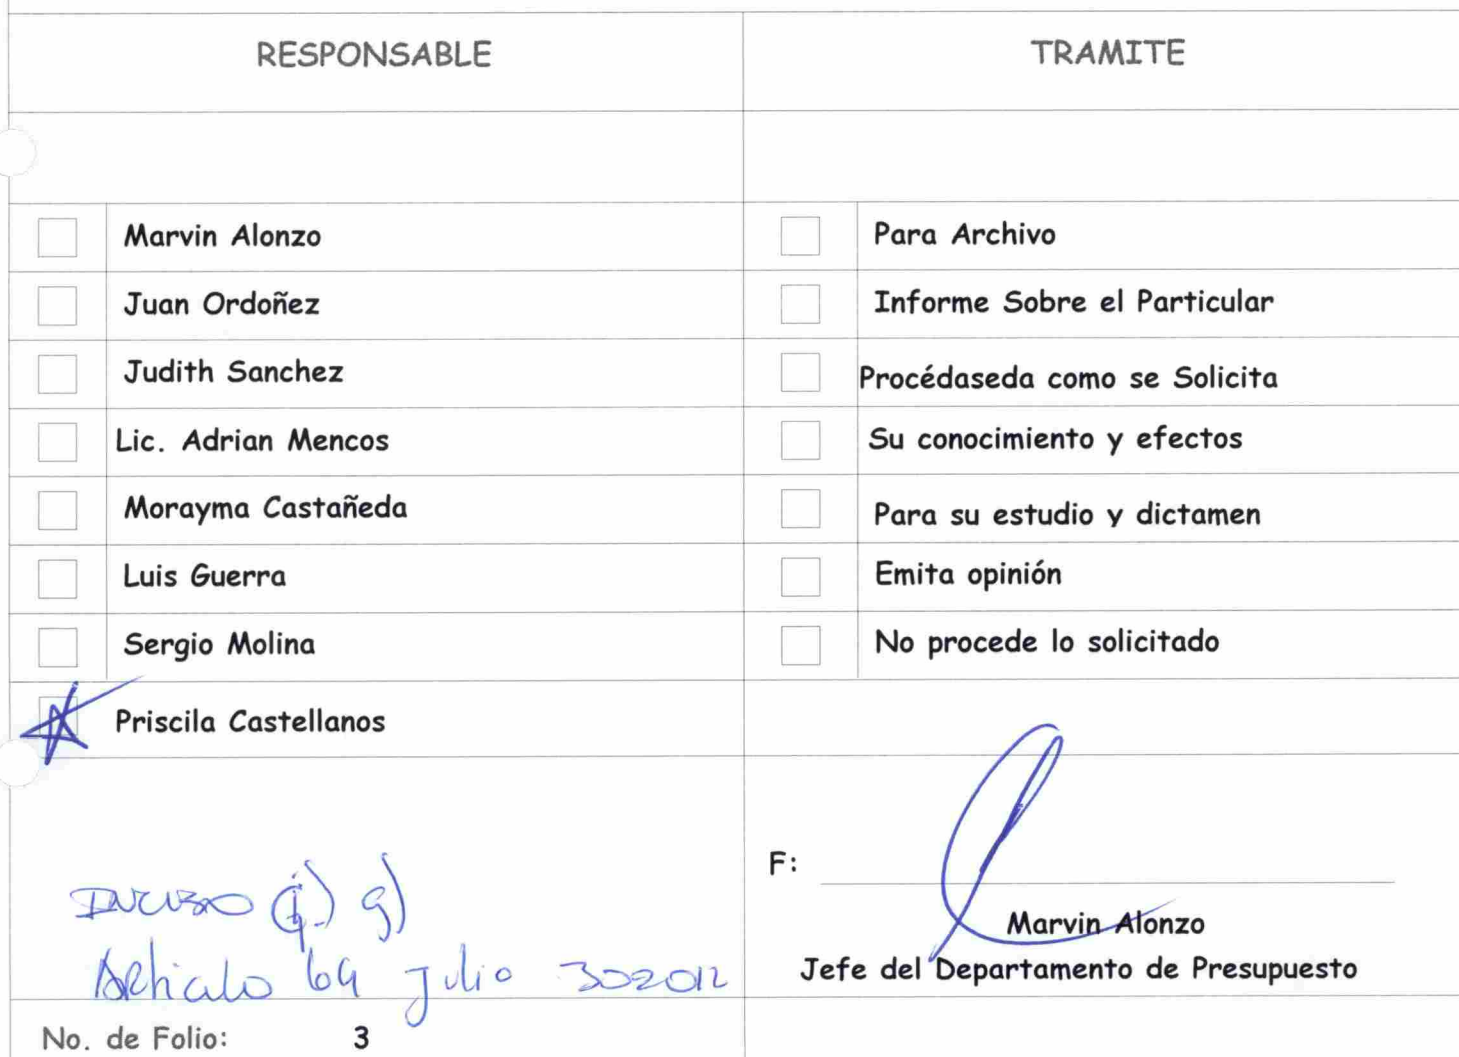 RESPONSABLE
TRAMITE
Marvin Alonzo
Para Archivo
Juan Ordoñez
Informe Sobre el Particular
Judith Sanchez
Procédaseda como se Solicita
Lic. Adrian Mencos
Su conocimiento y efectos
Morayma Castañeda
Para su estudio y dictamen
Luis Guerra
Emita opinión
Sergio Molina
No procede lo solicitado
Priscila Castellanos
F:
Inciso g)
Marvin Alonzo
Articulo 69 Julio 302012
Jefe del Departamento de Presupuesto
No. de Folio: 3